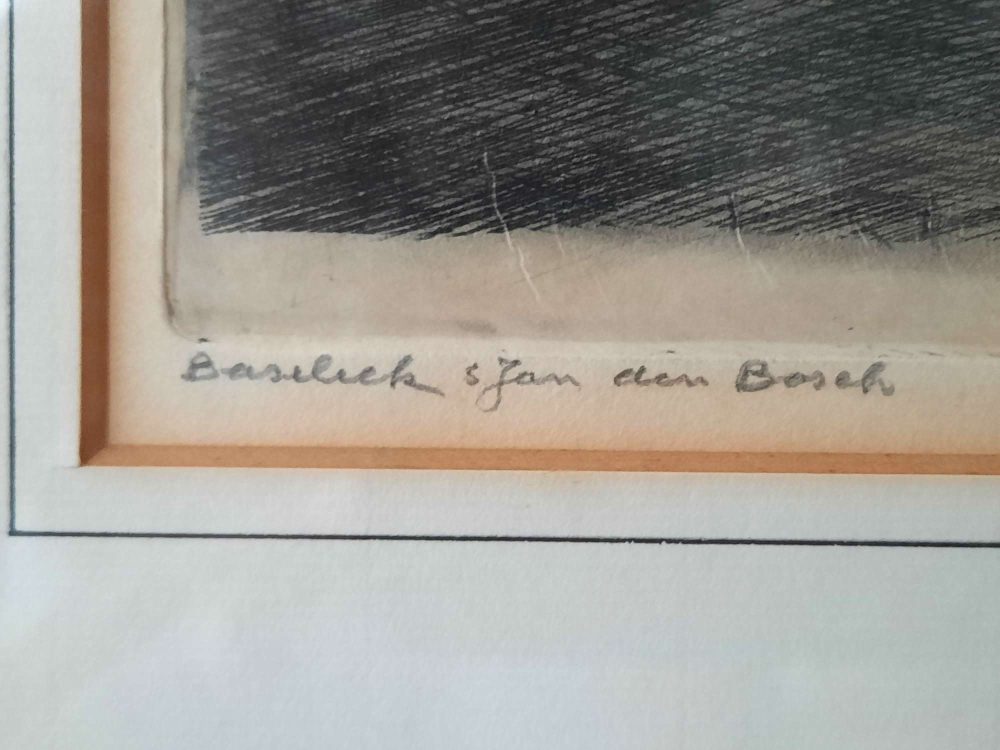 Baseliek s Jan den Bosch